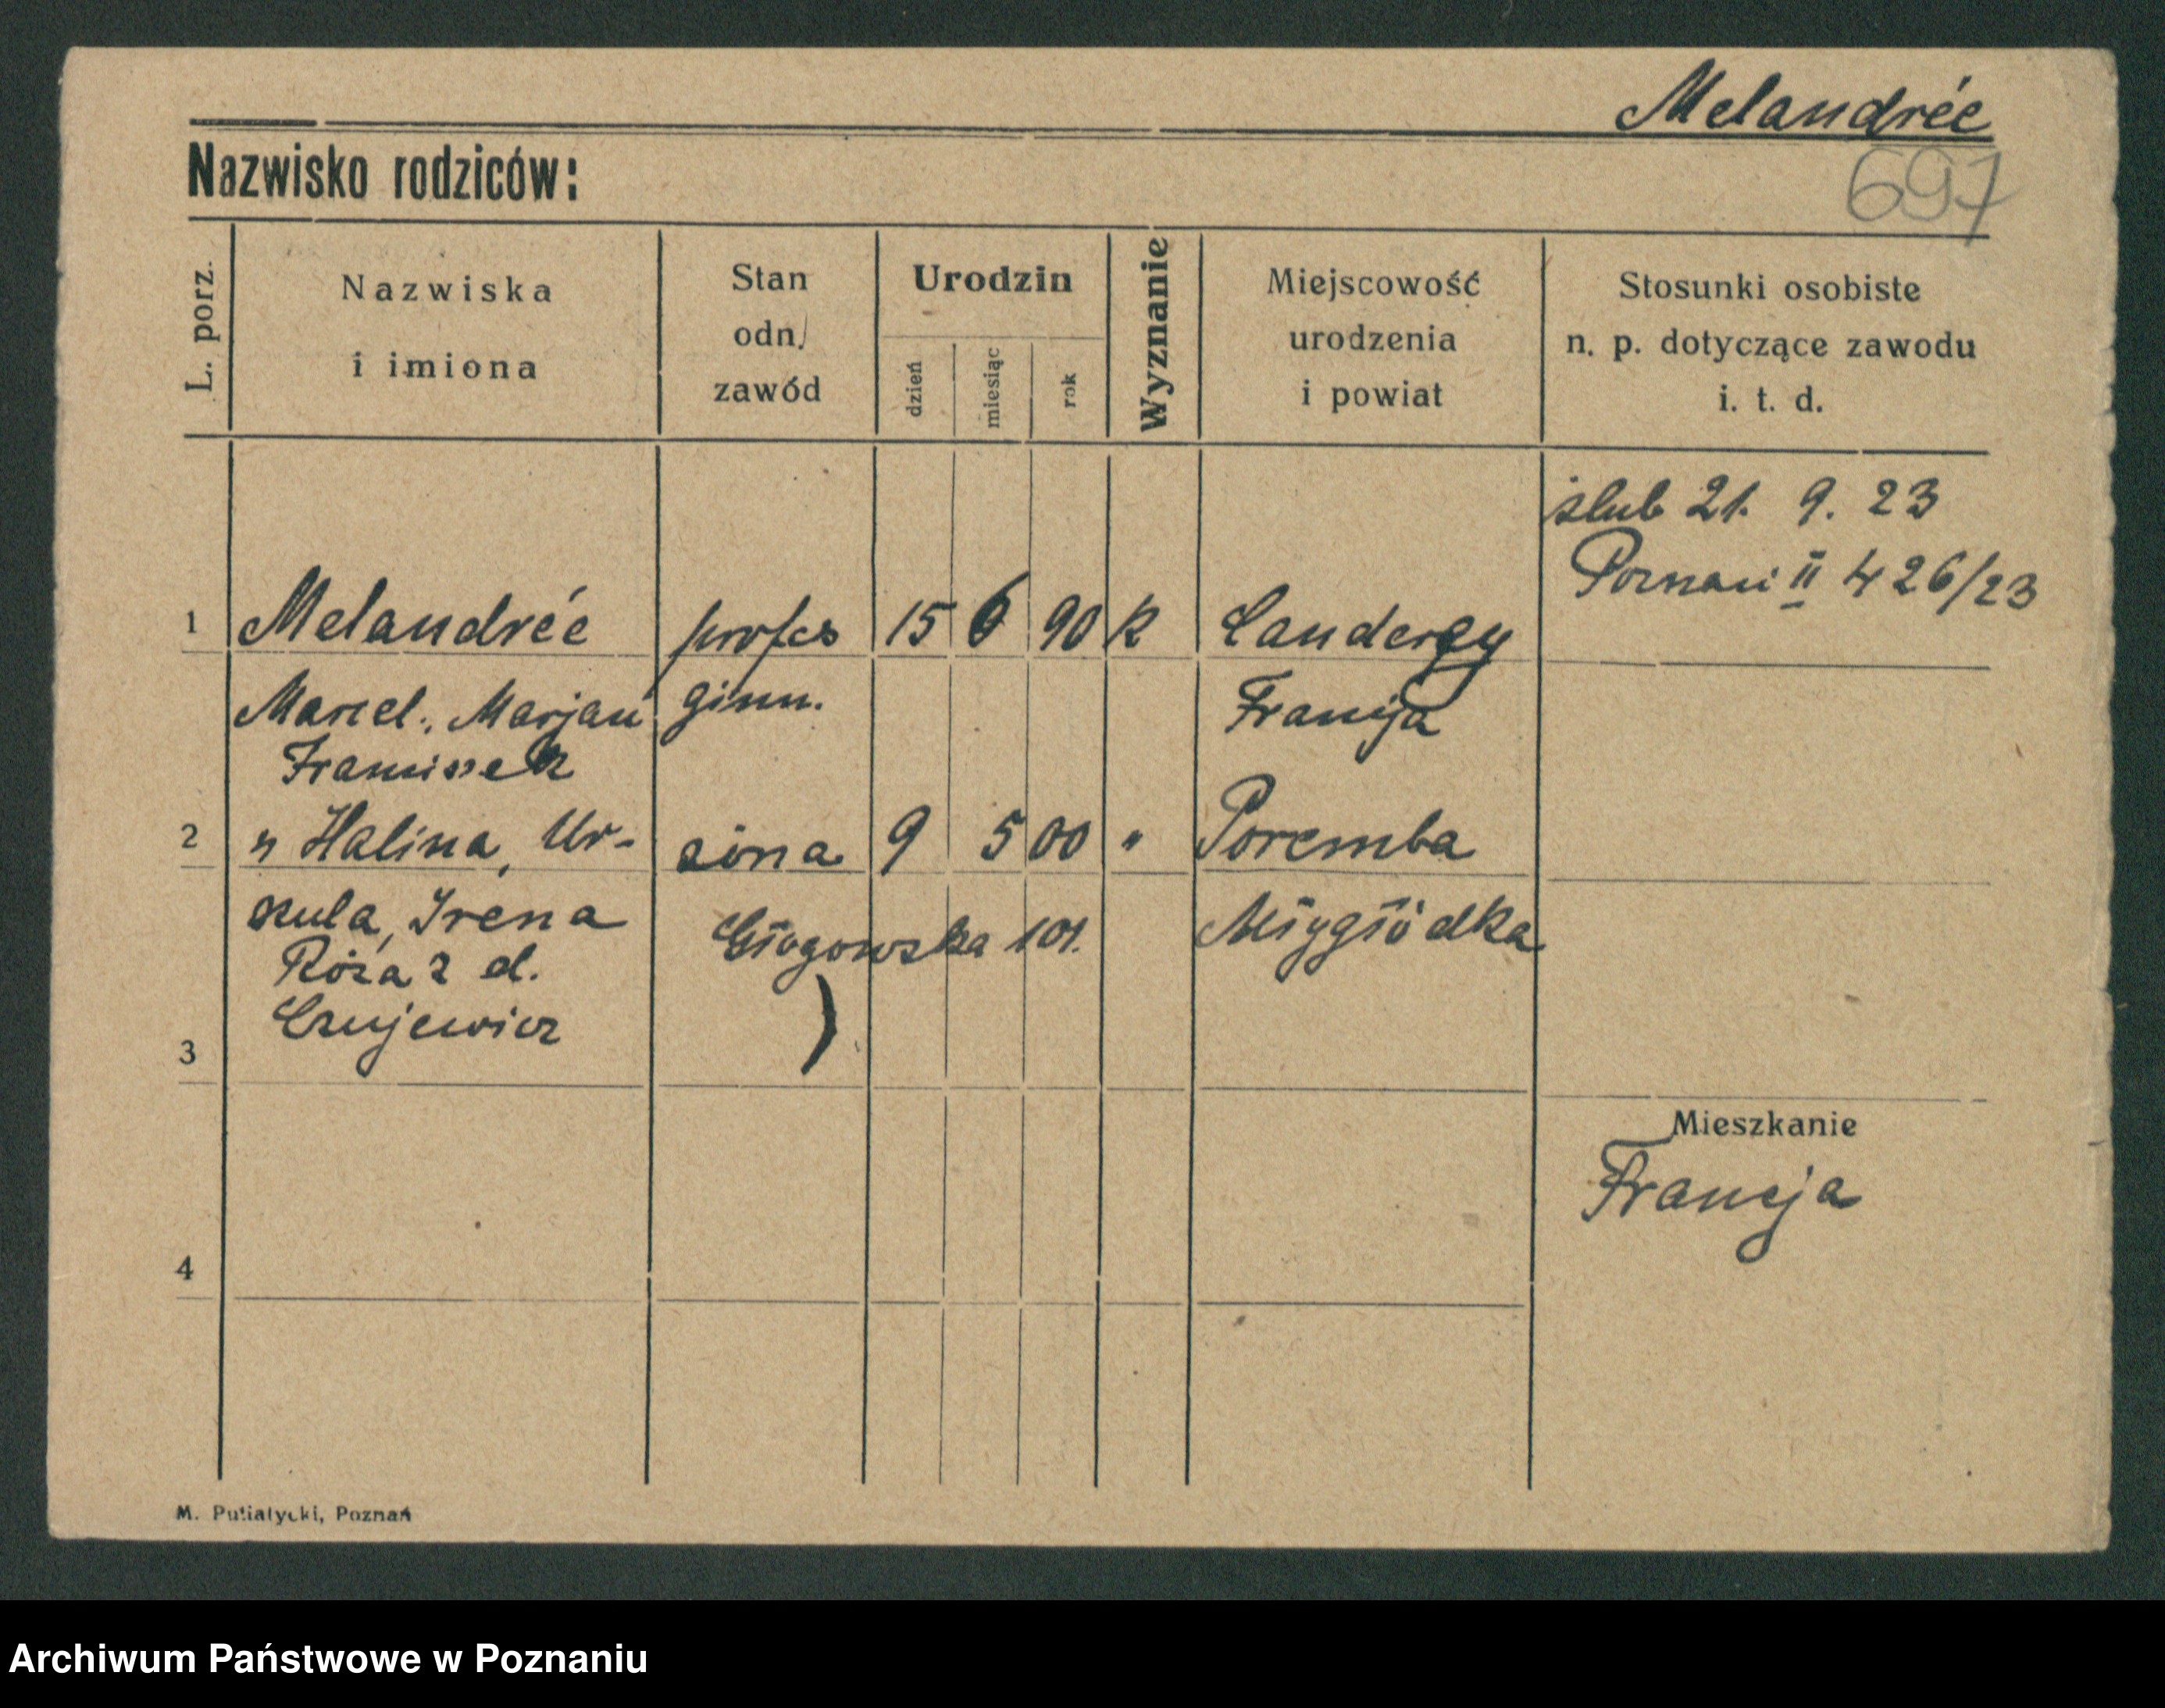 Melandrée
Nazwisko rodziców:
697
L. porz.
Nazwiska
i imiona
Stan
odn.
zawód
Urodzin
dzień
miesiąc
rok
Wyznanie
Miejscowość
urodzenia
i powiat
Stosunki osobiste
n. p. dotyczące zawodu
i. t. d.
ślub 21. 9. 23
Poznań II 426/23
1 Melandrée profes 15 6 90 k
Marcel, Marjan ginn. Francja
Franciszek
2 " Halina, Ur- żona 9 5 00 " Poremba
szula, Irena Głogowska 101.
Róża z d.
3
Mieszkanie
Francja
4
M. Putiatycki, Poznań
Archiwum Państwowe w Poznaniu